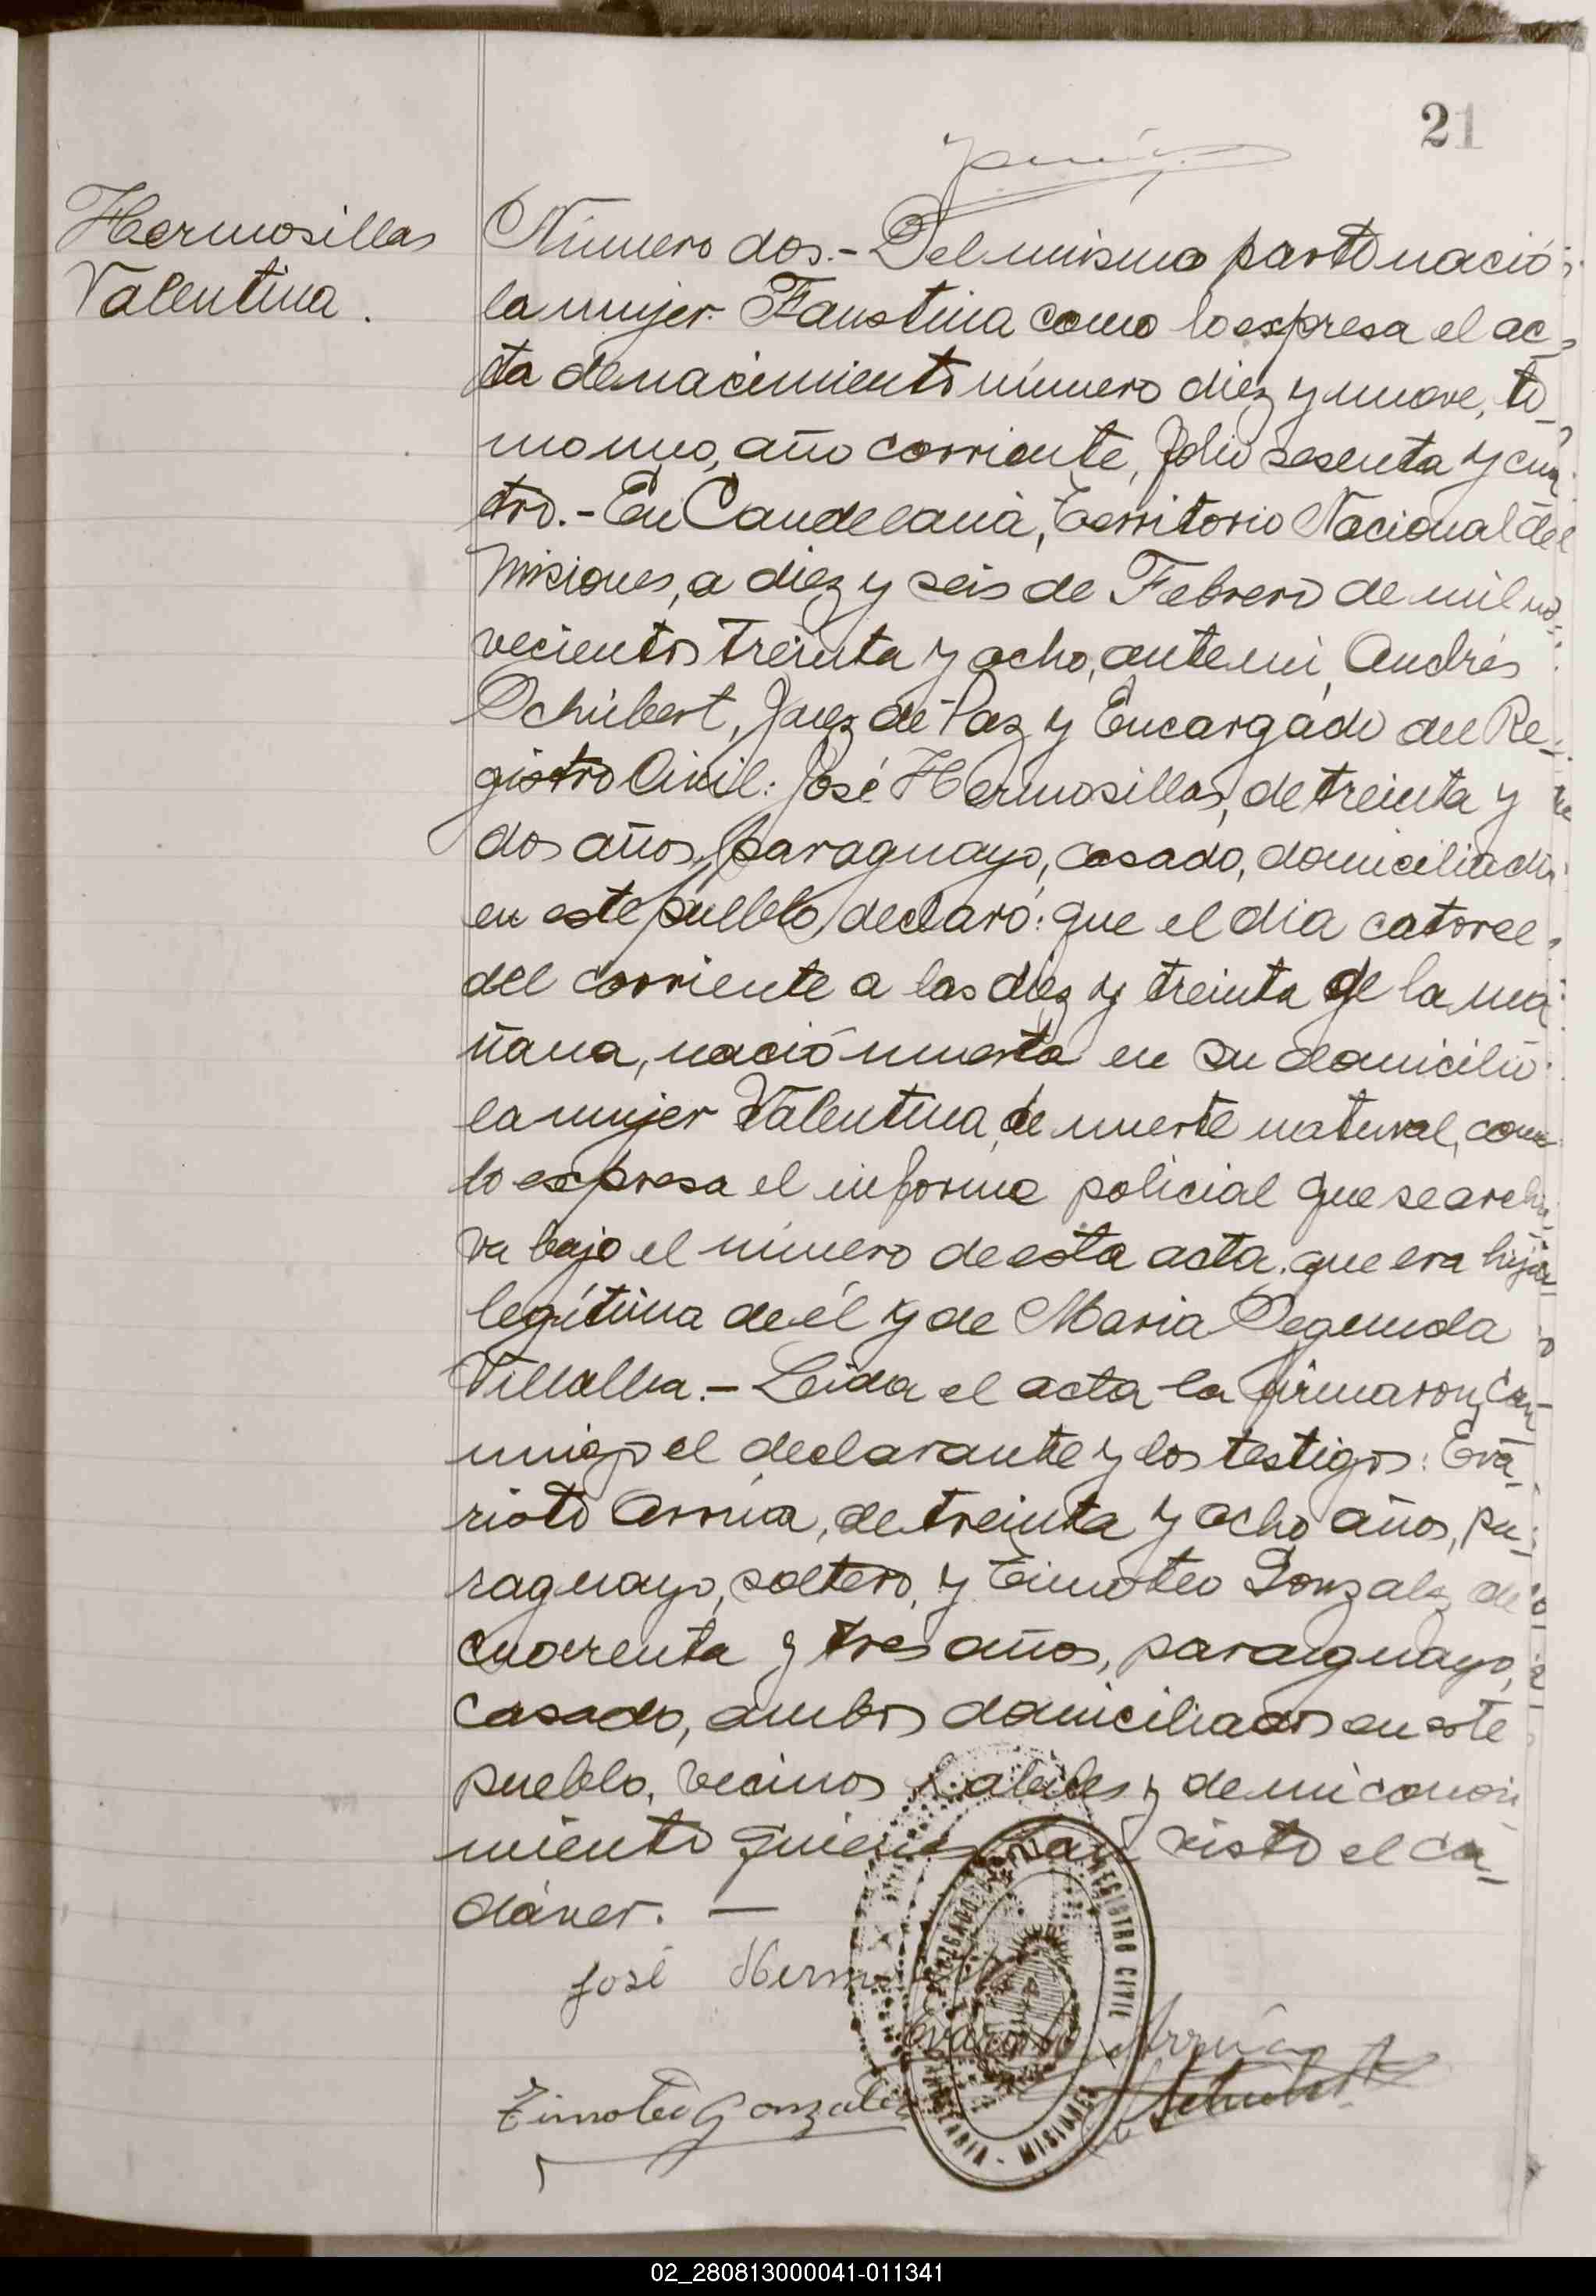 21
Hermosillas
Valentina.
Número dos.- Del mismo parto nació
la mujer Faustina como lo espresa el ac-
ta de nacimiento número diez y nueve, to-
mo uno, año corriente, folio sesenta y cua
tro.- En Candelaria, Territorio Nacional de
Misiones, a diez y seis de Febrero de mil no
vecientos treinta y ocho, ante mi, Andrés
Schubert, Juez de Paz y Encargado del Re-
gistro Civil: José Hermosillas, de treinta y
dos años, paraguayo, casado, domiciliado
en este pueblo, declaró: que el dia catorce
del corriente a las diez y treinta de la ma
ñana, nació muerta en su domicilio
la mujer Valentina, de muerte natural, como
lo expresa el informe policial que se archi
va bajo el número de esta acta. que era hija
legítima de él y de Maria Segunda
Villalba.- Leida el acta la firmaron con
migo el declarante y los testigos: Eva-
risto Arrúa, de treinta y ocho años, pa-
raguayo, soltero, y Timoteo Gonzalez de
cuarenta y tres años, paraguayo,
casado, ambos domiciliados en este
pueblo, vecinos habiles y de mi conoci
miento quienes han visto el ca-
dáver. —
José Herm
Evaristo Arrúa
Timoteo Gonzalez
Schubert
JUZGADO DE PAZ
REGISTRO CIVIL
CANDELARIA - MISIONES
02_280813000041-011341